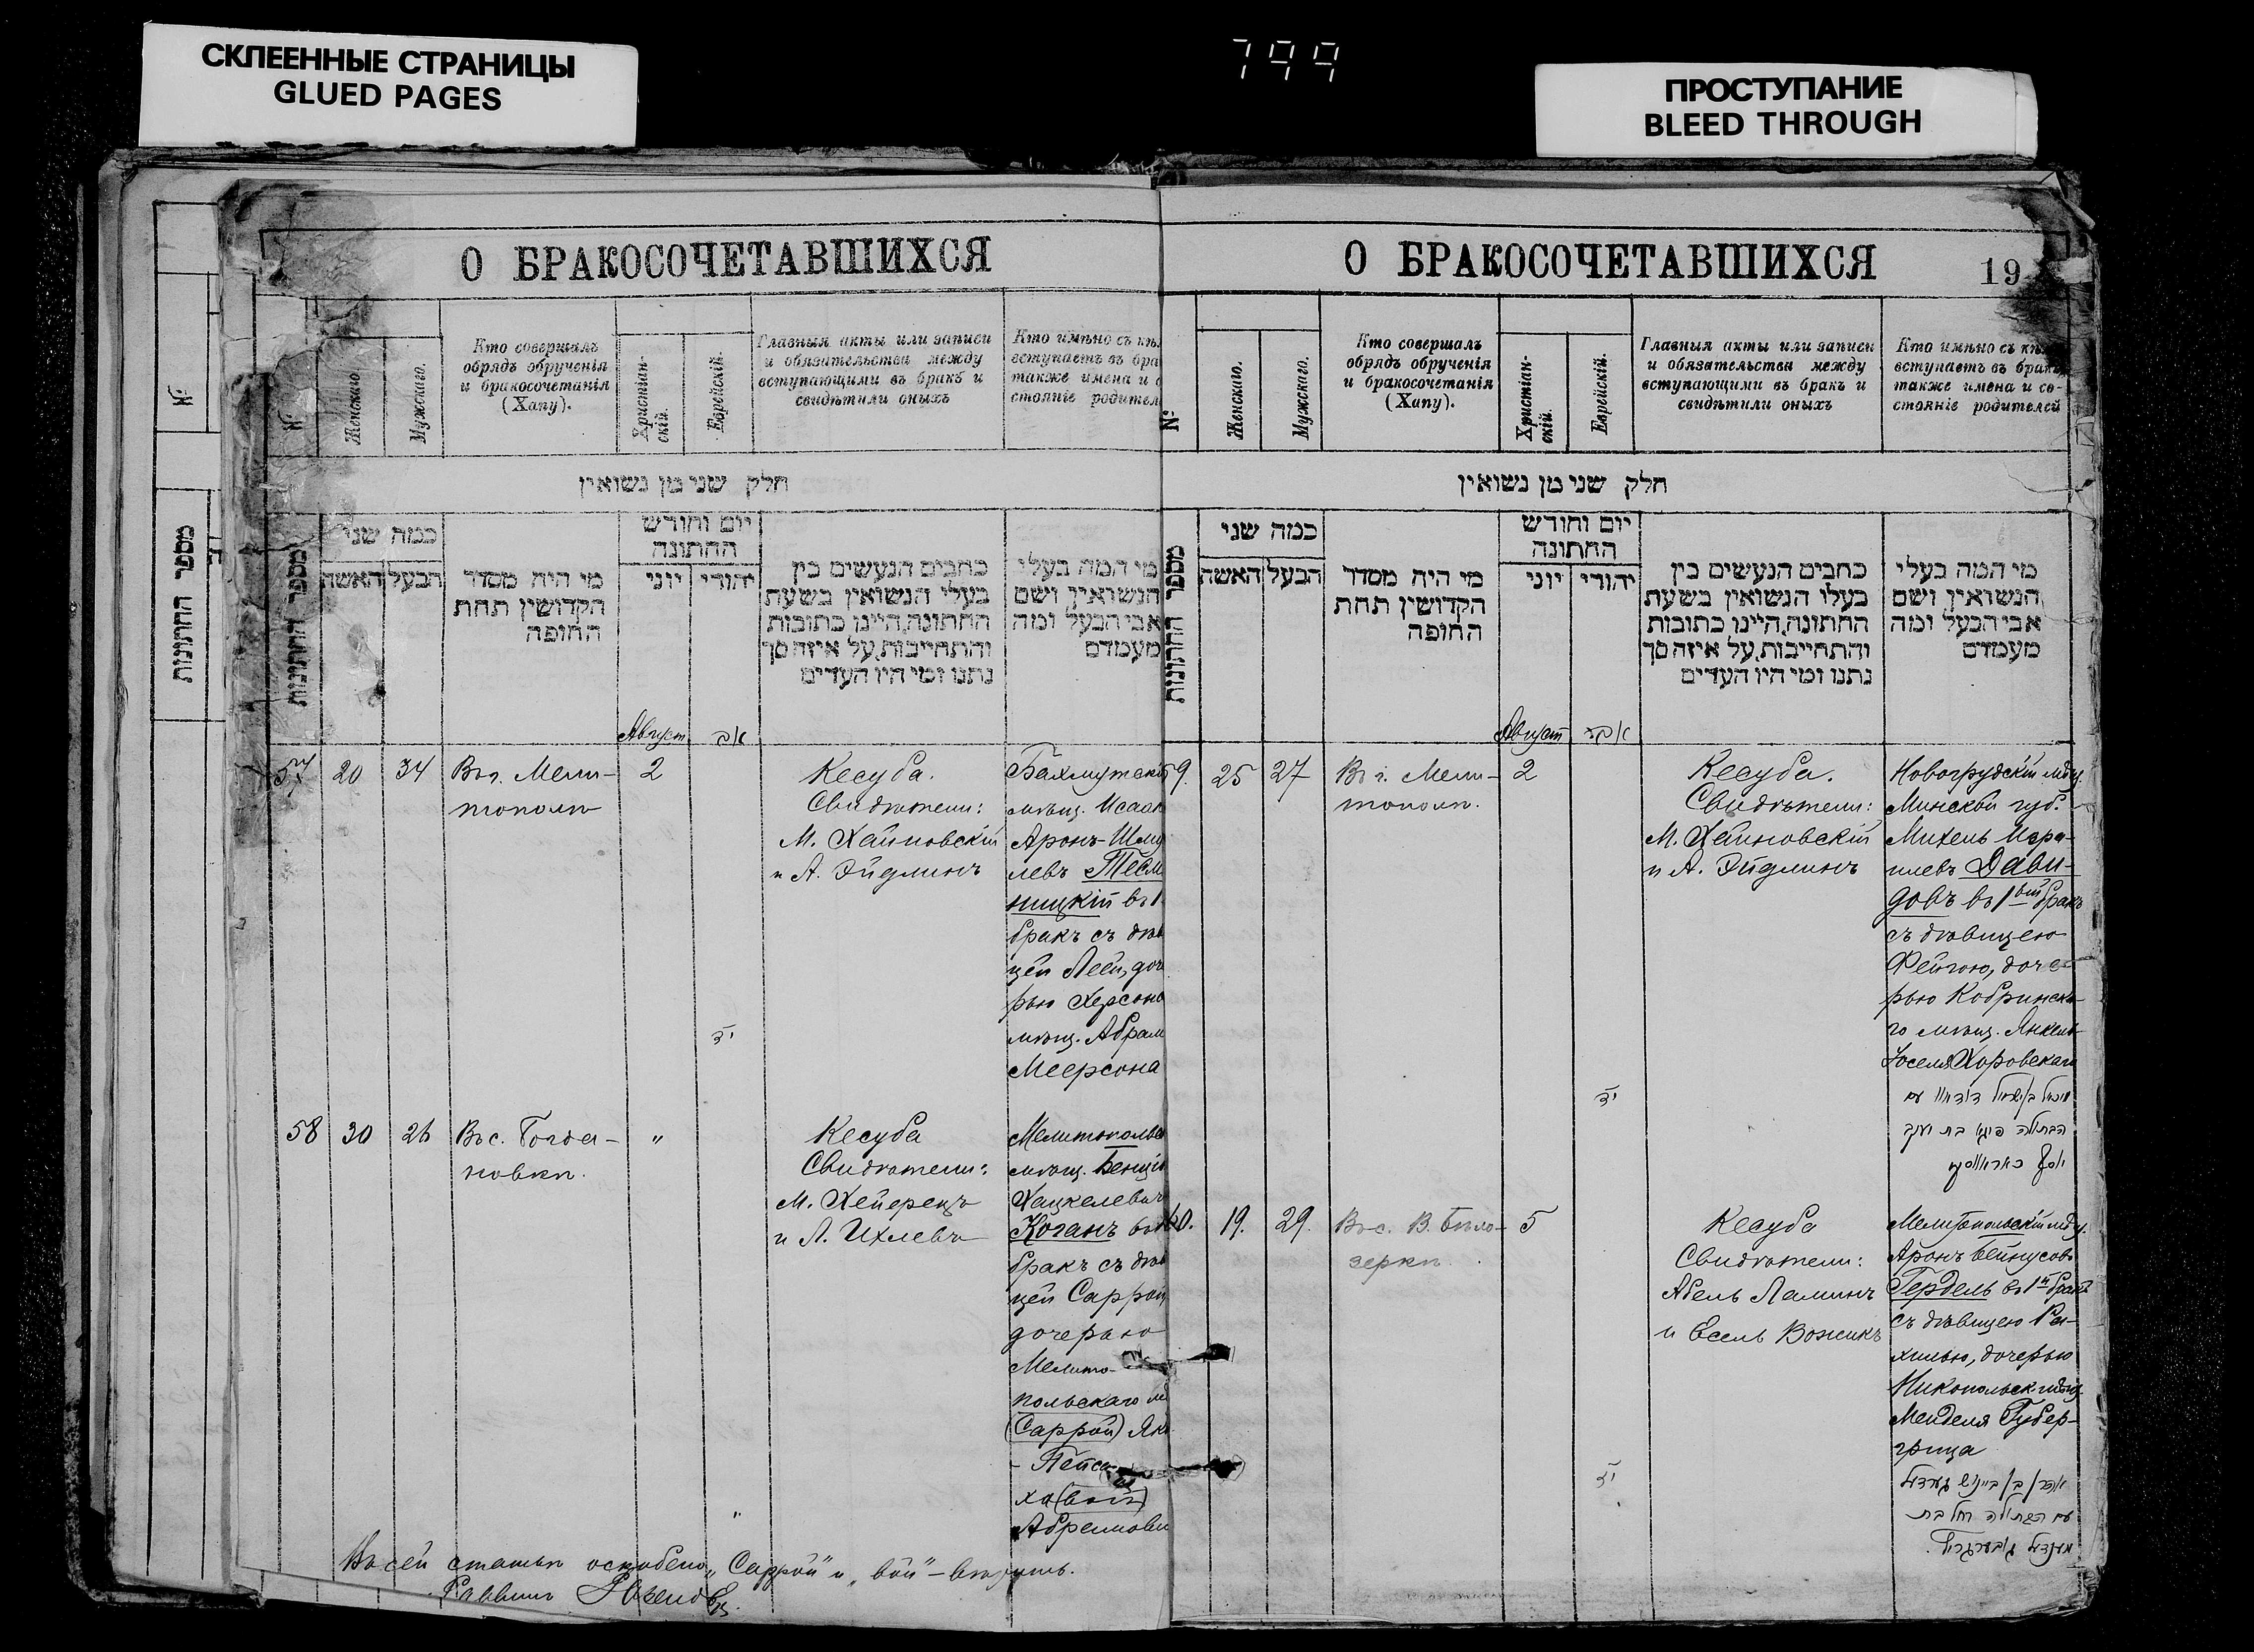 СКЛЕЕННЫЕ СТРАНИЦЫ
GLUED PAGES
799
ПРОСТУПАНИЕ
BLEED THROUGH
№
מספר החתונות
О БРАКОСОЧЕТАВШИХСЯ
№
Женскаго.
Мужскаго.
Кто совершалъ
обрядъ обрученія
и бракосочетанія
(Хапу).
Христіан-
скій.
Еврейскій.
Главныя акты или записи
и обязательства между
вступающими въ бракъ и
свидѣтили оныхъ
Кто имѣно съ кѣм
вступаетъ въ бра
также имена и с
стояніе родител
חלק שני מן נשואין
מספר החתונות
כמה שני
האשה
הבעל
מי היה מסדר
הקדושין תחת
החופה
יום וחודש
החתונה
יוני
יהודי
כתבים הנעשים בין
בעלי הנשואין בשעת
החתונה, היינו כתובות
והתחייבות, על איזה סך
נתנו ומי היו העדים
מי המה בעלי
הנשואין ושם
אבי הבעל ומה
מעמדם
Августъ אב
57 20 34 Въ г. Мели-
тополѣ
2
יד
Кесуба.
Свидѣтели:
М. Хайновскій
и А. Эйдлинъ
Бахмутскій
мѣщ. Исаакъ
Аронъ-Шму
левъ Тесм
ницкій въ 1
бракъ съ дѣв
цей Леей, доч
рью Херсонс
мѣщ. Абрам
Меерсона
58 30 26 Въ с. Богда-
новкѣ.
"
"
Кесуба
Свидѣтели:
М. Хейфецъ
и Л. Ихлевъ
Мелитопольс
мѣщ. Бенціо
Хацкелевичъ
Коганъ въ 1
бракъ съ дѣв
цей Саррой,
дочерью
Мелито-
польскаго мѣ
(Саррой) Янк
- Пейса-
хо(вой)
Абрамови
Въ сей статьѣ оскоблено „Саррой" и „вой" – вѣрить.
Раввинъ
О БРАКОСОЧЕТАВШИХСЯ
19
№
Женскаго.
Мужскаго.
Кто совершалъ
обрядъ обрученія
и бракосочетанія
(Хапу).
Христіан-
скій.
Еврейскій.
Главныя акты или записи
и обязательства между
вступающими въ бракъ и
свидѣтили оныхъ
Кто имѣно съ кѣмъ
вступаетъ въ бракъ
также имена и со-
стояніе родителей
חלק שני מן נשואין
מספר החתונות
כמה שני
האשה
הבעל
מי היה מסדר
הקדושין תחת
החופה
יום וחודש
החתונה
יוני
יהודי
כתבים הנעשים בין
בעלי הנשואין בשעת
החתונה, היינו כתובות
והתחייבות, על איזה סך
נתנו ומי היו העדים
מי המה בעלי
הנשואין ושם
אבי הבעל ומה
מעמדם
Августъ אב
59. 25 27 Въ г. Мели-
тополѣ.
2
יד
Кесуба.
Свидѣтели:
М. Хайновскій
и А. Эйдлинъ
Новогрудскій мѣщ.
Минской губ.
Михель Изра-
илевъ Дави-
довъ въ 1вый бракъ
съ дѣвицею
Фейгою, доче-
рью Кобринска-
го мѣщ. Янкель
Іоселя Хоровскаго
מיכל בן ישראל דוידאוו עם
הבתולה פייגא בת יעקב
יוסף כאראווסקי
60. 19. 29. Въ с. В. Бѣло-
зеркѣ.
5
Кесуба
Свидѣтели:
Абель Ламинъ
и Евсель Вожикъ
Мелитопольскій мѣщ.
Аронъ Бейнусовъ
Гердель въ 1й бракъ
съ дѣвицею Ра-
хилью, дочерью
Никопольск. мѣщ.
Менделя Губер-
грица
אהרן בן ביינוש גערדעל
עם הבתולה רחל בת
מענדעל גובערגריץ.